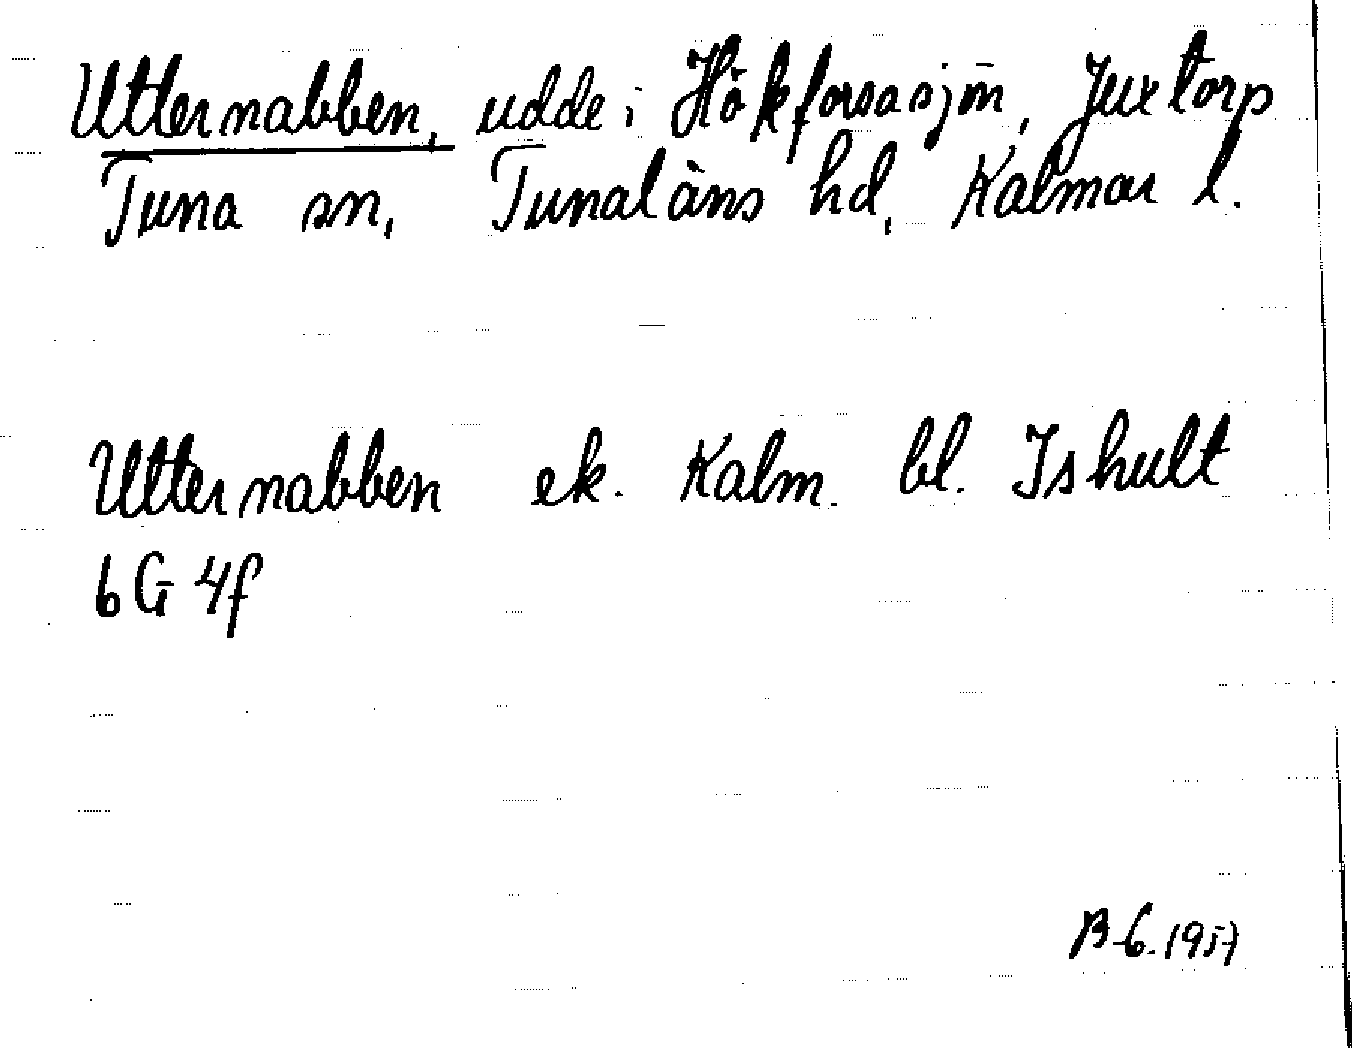 Utternabben, udde i Hökforsasjön, Juxtorp
Tuna sn, Tunaläns hd, Kalmar l.
Utternabben ek. Kalm. bl. Ishult
6G 4f
B-G. 1957